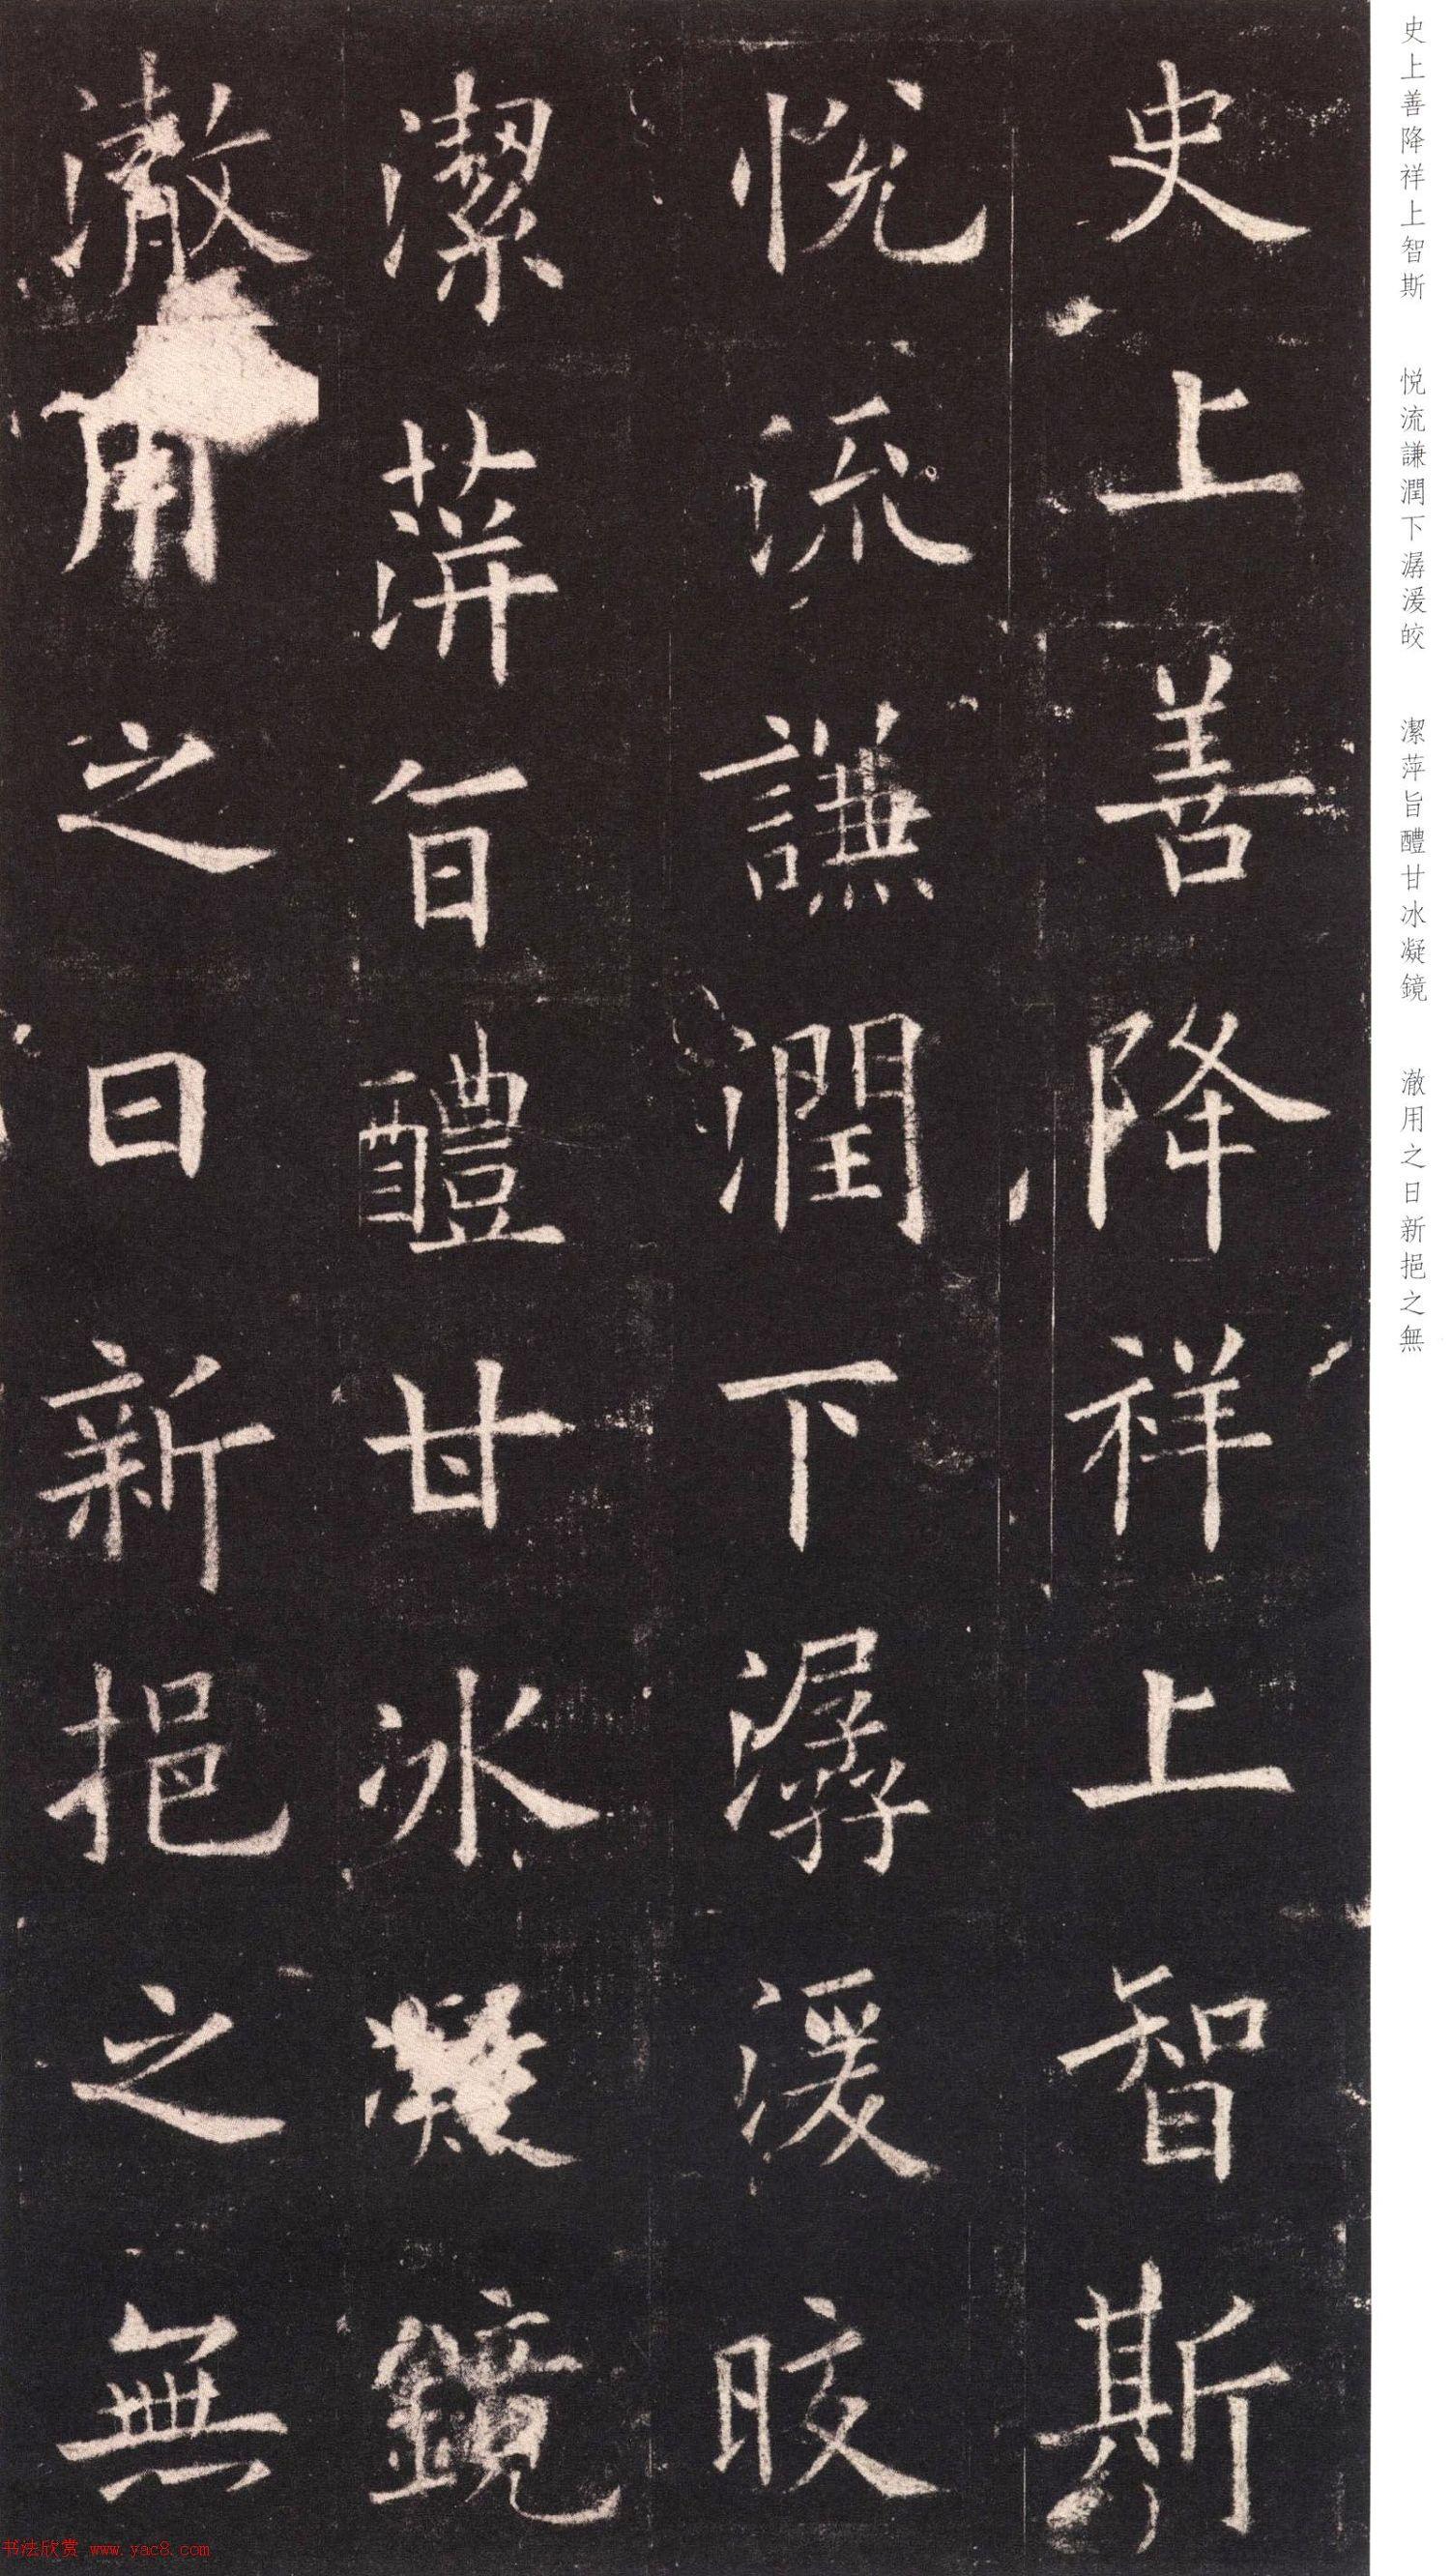 史上善降祥上智斯
悅流謙潤下潺湲皎
潔萍旨醴甘冰凝鏡
澈用之日新挹之無
史上善降祥上智斯 悦流謙潤下潺湲皎 潔萍旨醴甘冰凝鏡 澈用之日新挹之無
书法欣赏 www.yac8.com